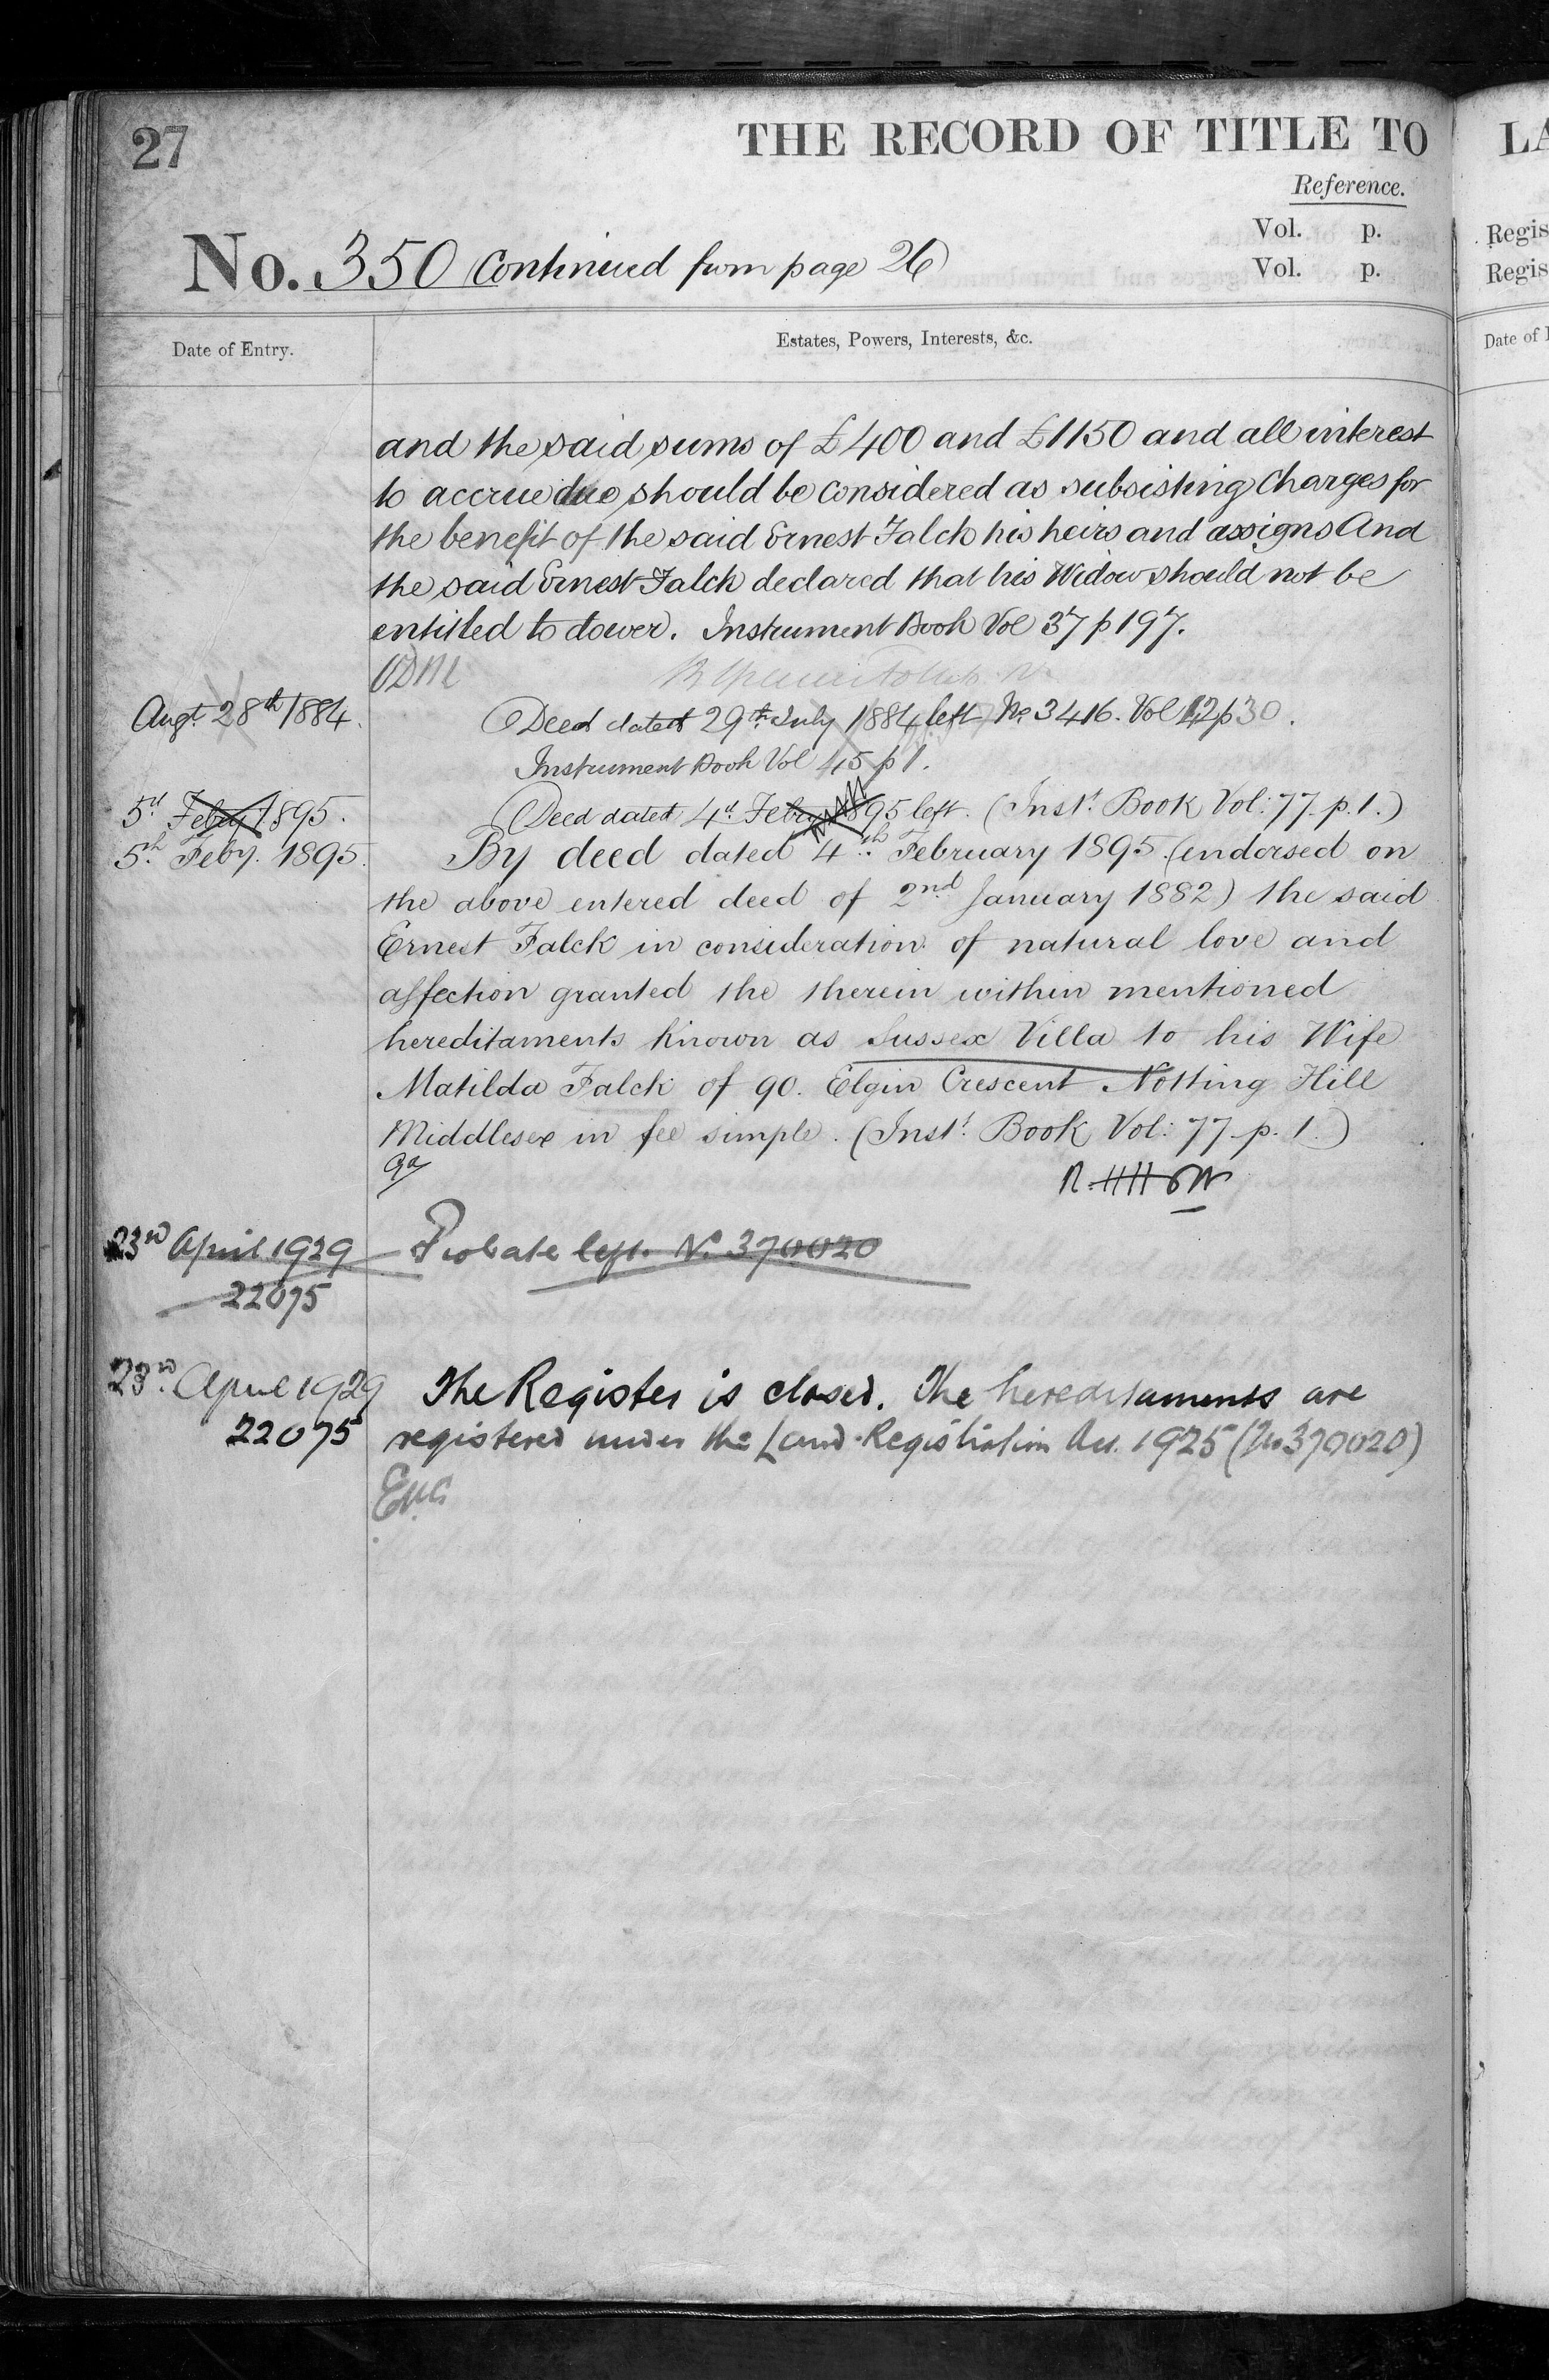 27
THE RECORD OF TITLE TO
LA
Reference.
Vol. p.
Regis
No. 350 Continued from page 26
Vol. p.
Regis
Date of Entry.
Estates, Powers, Interests, &c.
Date of
and the said sums of £400 and £1150 and all interest
to accrue due should be considered as subsisting Charges for
the benefit of the said Ernest Falck his heirs and assigns And
the said Ernest Falck declared that his Widow should not be
entitled to dower. Instrument Book Vol 37 p 197.
Augt. 28th 1884.
Deed dated 29th July 1884 left No 3416. Vol 12 p 30.
Instrument Book Vol 45 p 1.
5th Feby 1895.
Deed dated 4th Feby 1895 left. (Inst. Book Vol: 77. p. 1.)
5th Feby. 1895.
By deed dated 4th February 1895 (endorsed on
the above entered deed of 2nd January 1882) the said
Ernest Falck in consideration of natural love and
affection granted the therein within mentioned
hereditaments known as Sussex Villa to his Wife
Matilda Falck of 90. Elgin Crescent Notting Hill
Middlesex in fee simple. (Inst. Book Vol: 77 p. 1.)
23rd April 1929
Probate left. No. 370020
22075
23rd April 1929
The Register is closed. The hereditaments are
22075
registered under the Land Registration Act. 1925 (No 370020)